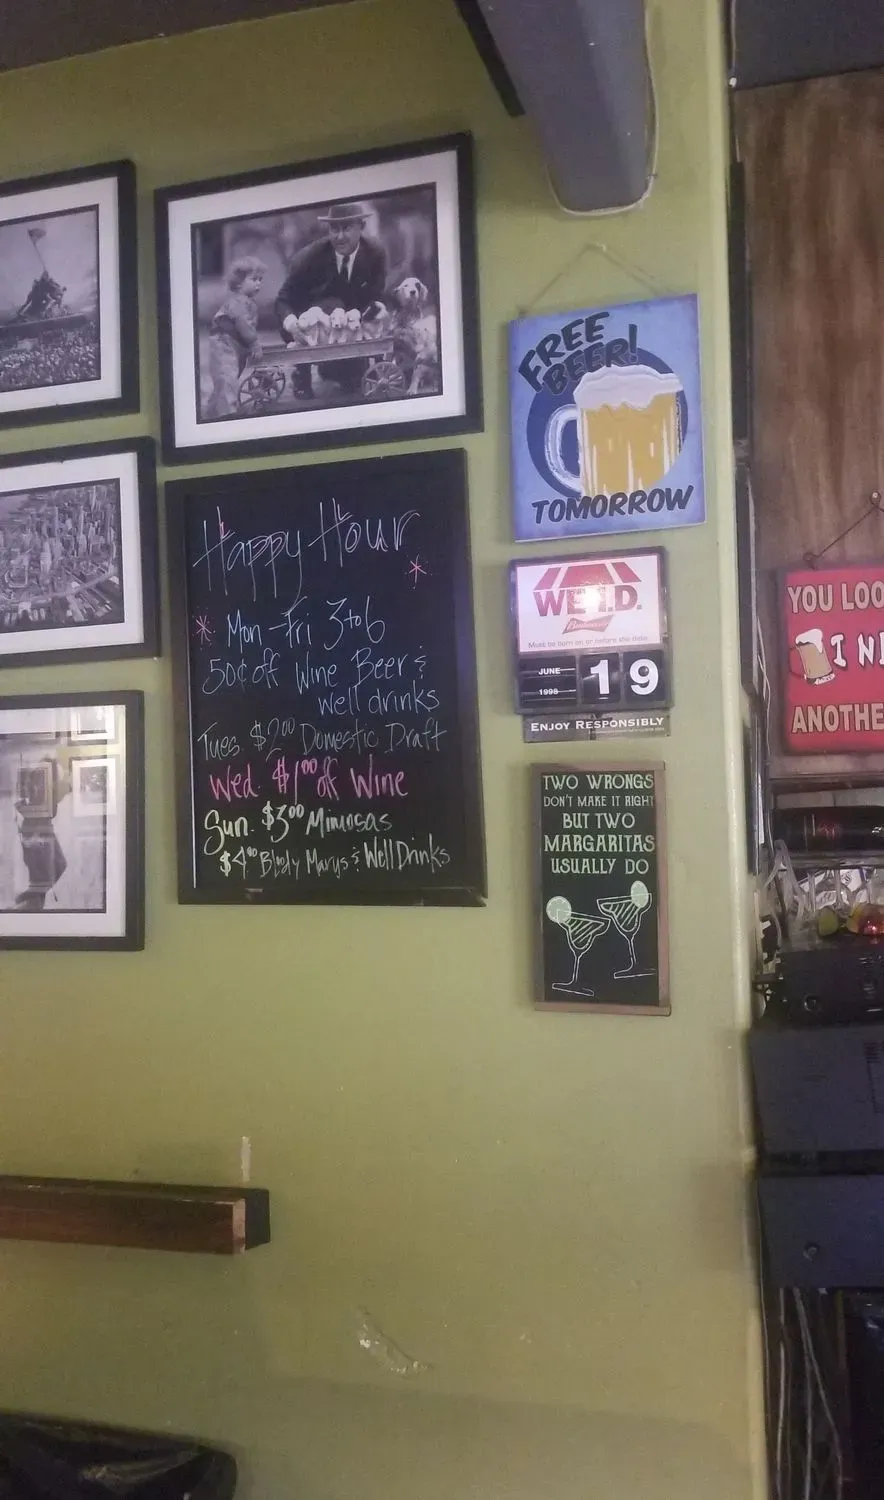 FREE
BEER!
TOMORROW
Happy Hour
Mon - Fri 3 to 6
50¢ off Wine Beer &
well drinks
Tues. $2.00 Domestic Draft
Wed. $1.00 off Wine
Sun. $3.00 Mimosas
$4.00 Bloody Marys & Well Drinks
WE I.D.
Budweiser
Must be born on or before this date.
JUNE
1998
19
ENJOY RESPONSIBLY
TWO WRONGS
DON'T MAKE IT RIGHT
BUT TWO
MARGARITAS
USUALLY DO
YOU LOO
I N
ANOTHE